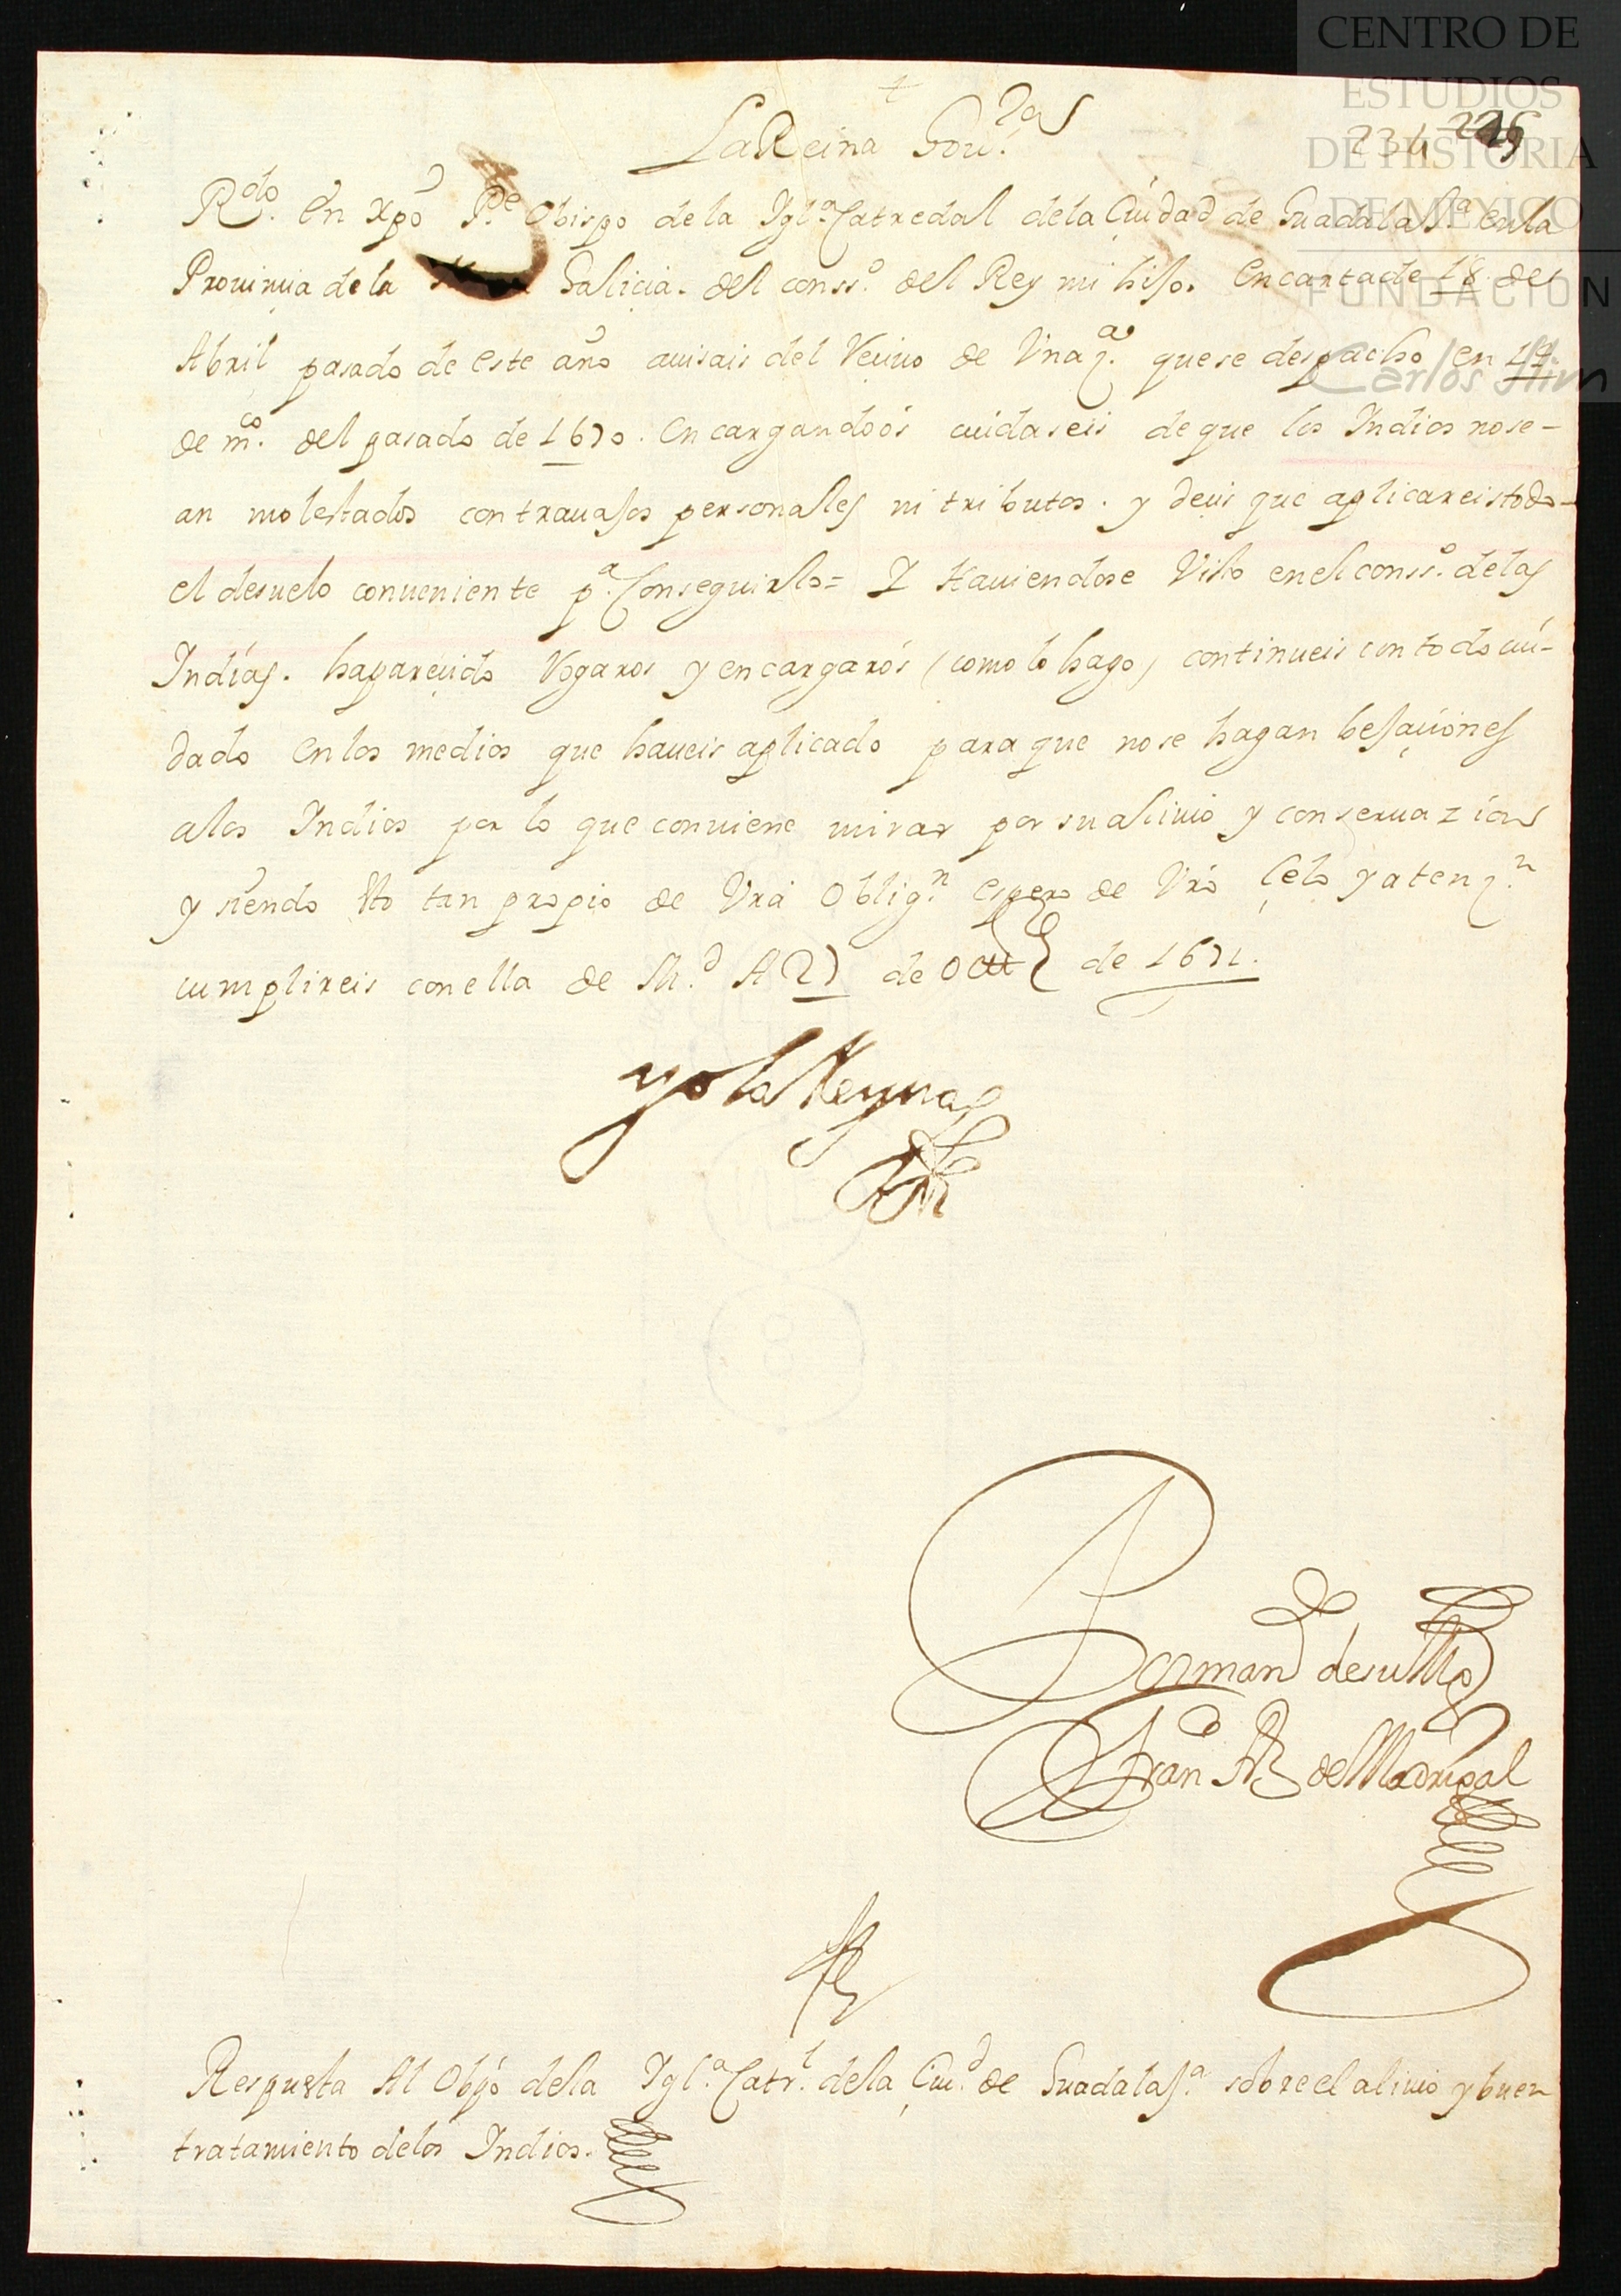 CENTRO DE
ESTUDIOS
DE HISTORIA
DE MEXICO
FUNDACION
Carlos Slim
234 225
La Reina Gou.ra
R.do en Xpo P.e Obispo de la Igl.a Catredal dela Ciudad de Guadalax.a enla
Prouinçia de la Galiçia. del conss.o del Rey mi hijo. En carta de 18 de
Abril pasado de este año auisais del Reciuo de Vna z.a que se despacho en
de m.co del pasado de 1670. encargandoós cuidaseis de que los Indios no se-
an molestados con trauajos personales ni tributos. y decis que aplicareis todo
el desuelo conueniente p.a Conseguirlo= Y Hauiendose Visto enel conss.o delas
Indías. ha pareçido Rogaros y encargarós (como lo hago) continueis con todo cui-
dado en los medios que haueis aplicado para que no se hagan bejaçiónes
alos Indios por lo que conuiene mirar por su aliuio y conseruazion
y siendo esto tan propio de Vra Oblig.n espero de Vro Çelo y atenz.n
cumplireis con ella de M.d A 27 de Octe de 1671.
yo la Reyna
Por mand de su Mg.d
Fran Frz de Madrigal
Respuesta Al Obpó dela Igl.a Catr.l dela Çiu.d de Guadalax.a sobre el aliuio y buen
tratamiento delos Indios.